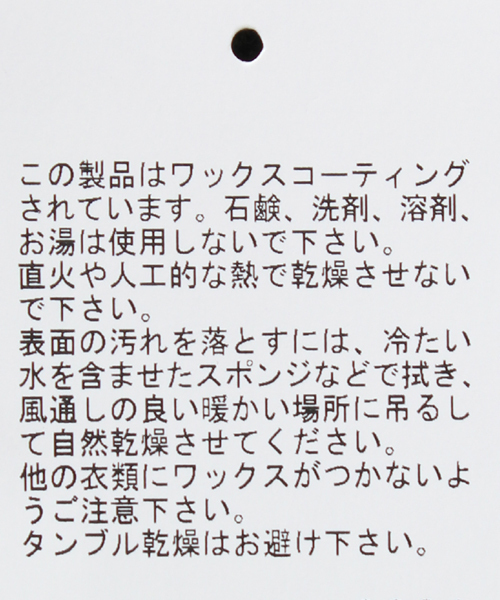 この製品はワックスコーティング
されています。石鹸、洗剤、溶剤、
お湯は使用しないで下さい。
直火や人工的な熱で乾燥させない
で下さい。
表面の汚れを落とすには、冷たい
水を含ませたスポンジなどで拭き、
風通しの良い暖かい場所に吊るし
て自然乾燥させてください。
他の衣類にワックスがつかないよ
うご注意下さい。
タンブル乾燥はお避け下さい。